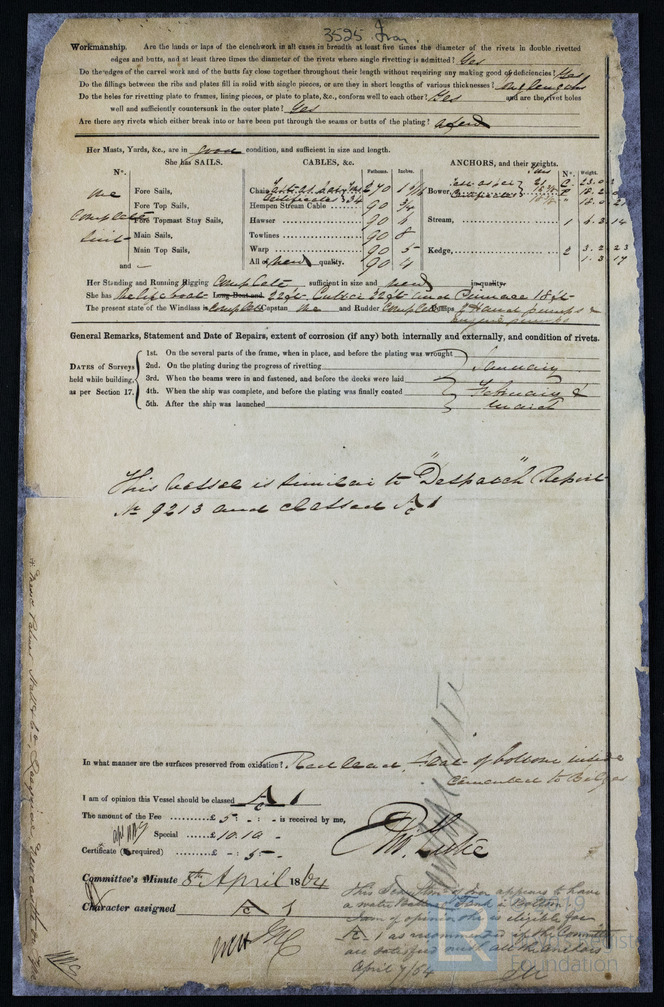 3525 Iron
Workmanship. Are the lands or laps of the clenchwork in all cases in breadth at least five times the diameter of the rivets in double rivetted
edges and butts, and at least three times the diameter of the rivets where single rivetting is admitted? Yes
Do the edges of the carvel work and of the butts fay close together throughout their length without requiring any making good of deficiencies? Yes
Do the fillings between the ribs and plates fill in solid with single pieces, or are they in short lengths of various thicknesses? one length
Do the holes for rivetting plate to frames, lining pieces, or plate to plate, &c., conform well to each other? Yes and are the rivet holes
well and sufficiently countersunk in the outer plate? Yes
Are there any rivets which either break into or have been put through the seams or butts of the plating? a few
Her Masts, Yards, &c., are in good condition, and sufficient in size and length.
She has SAILS. CABLES, &c. ANCHORS, and their weights.
N°. Fathoms. Inches. N°. Weight.
one Fore Sails, Chain 270 1 7/16 Bower,
Complete Fore Top Sails, Hempen Stream Cable 90
Suit Fore Topmast Stay Sails, Hawser 90 6 Stream, 1 6.3.14
Main Sails, Towlines 90 8
Main Top Sails, Warp 90 5 Kedge, 2 3.2.23
and All of new quality. 90 4 1.3.17
Her Standing and Running Rigging Complete sufficient in size and new in quality
She has One lifeboat Long Boat and 22ft Cutter 22ft and Pinnace 18ft
The present state of the Windlass is Complete Capstan one and Rudder Complete Pumps 2 Hand pumps &
Engine pumps
General Remarks, Statement and Date of Repairs, extent of corrosion (if any) both internally and externally, and condition of rivets.
DATES of Surveys held while building, as per Section 17.
1st. On the several parts of the frame, when in place, and before the plating was wrought
2nd. On the plating during the progress of rivetting January
3rd. When the beams were in and fastened, and before the decks were laid
4th. When the ship was complete, and before the plating was finally coated February &
5th. After the ship was launched March
This vessel is similar to "Despatch" Report
No 9213 and classed A1
In what manner are the surfaces preserved from oxidation? Red lead, flat of bottom inside
cemented to Bilges
I am of opinion this Vessel should be classed A 1
The amount of the Fee ........£ 5 : - : - is received by me,
Special ........£ 10.10 -
Certificate (if required) ........£ - : 5 : -
Committee's Minute 8th April 1864
Character assigned A 1
This Iron appears to have
a water Ballast Tank in Bottom
I am of opinion she is eligible for
A 1 as recommended if the Committee
are satisfied with all the anchors
April 7/64
LR
Foundation